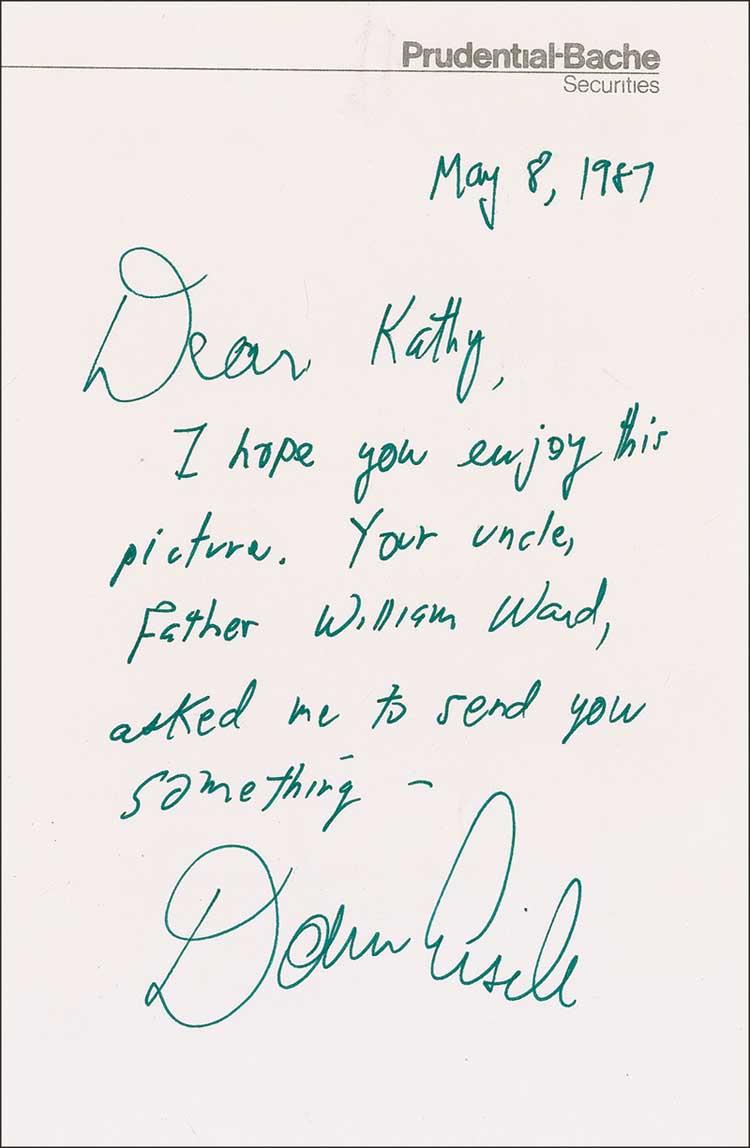 Prudential-Bache
Securities
May 8, 1987
Dear Kathy,
I hope you enjoy this
picture. Your uncle,
Father William Ward,
asked me to send you
something –
Donn Eisele